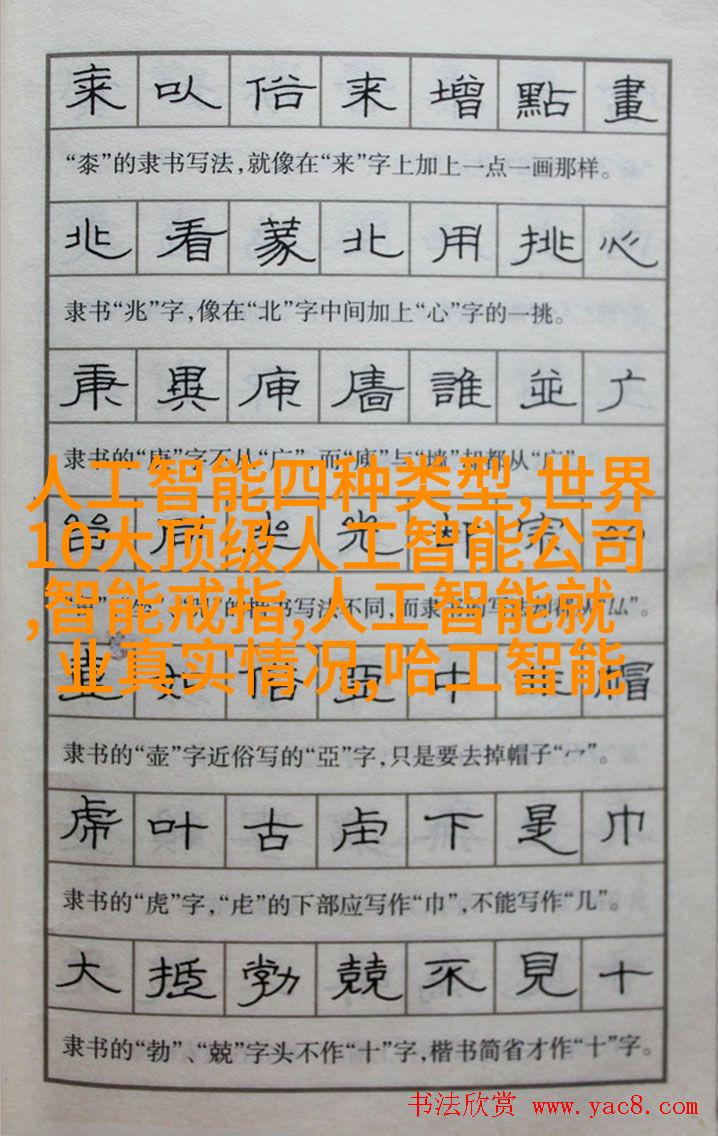 桼以俗来增點畫
“桼”的隶书写法,就像在“来”字上加上一点一画那样。
兆看篆北用挑心
隶书“兆”字,像在“北”字中间加上“心”字的一挑。
庚異庾廧誰並广
隶书的“庚”字不从“广”,而“庾”与“墙”却都从“广”。
人工智能四种类型,世界
10大顶级人工智能公司
,智能戒指,人工智能就
业真实情况,哈工智能
光
的楷书写法不同,而隶书的写法却都从“厸”。
壺如俗亞中非帽
隶书的“壶”字近俗写的“亞”字,只是要去掉帽子“宀”。
虎叶古虍下是巾
隶书的“虎”字,“虍”的下部应写作“巾”,不能写作“几”。
大抵勃兢不見十
隶书的“勃”、“兢”字头不作“十”字,楷书简省才作“十”字。
书法欣赏 www.yac8.com